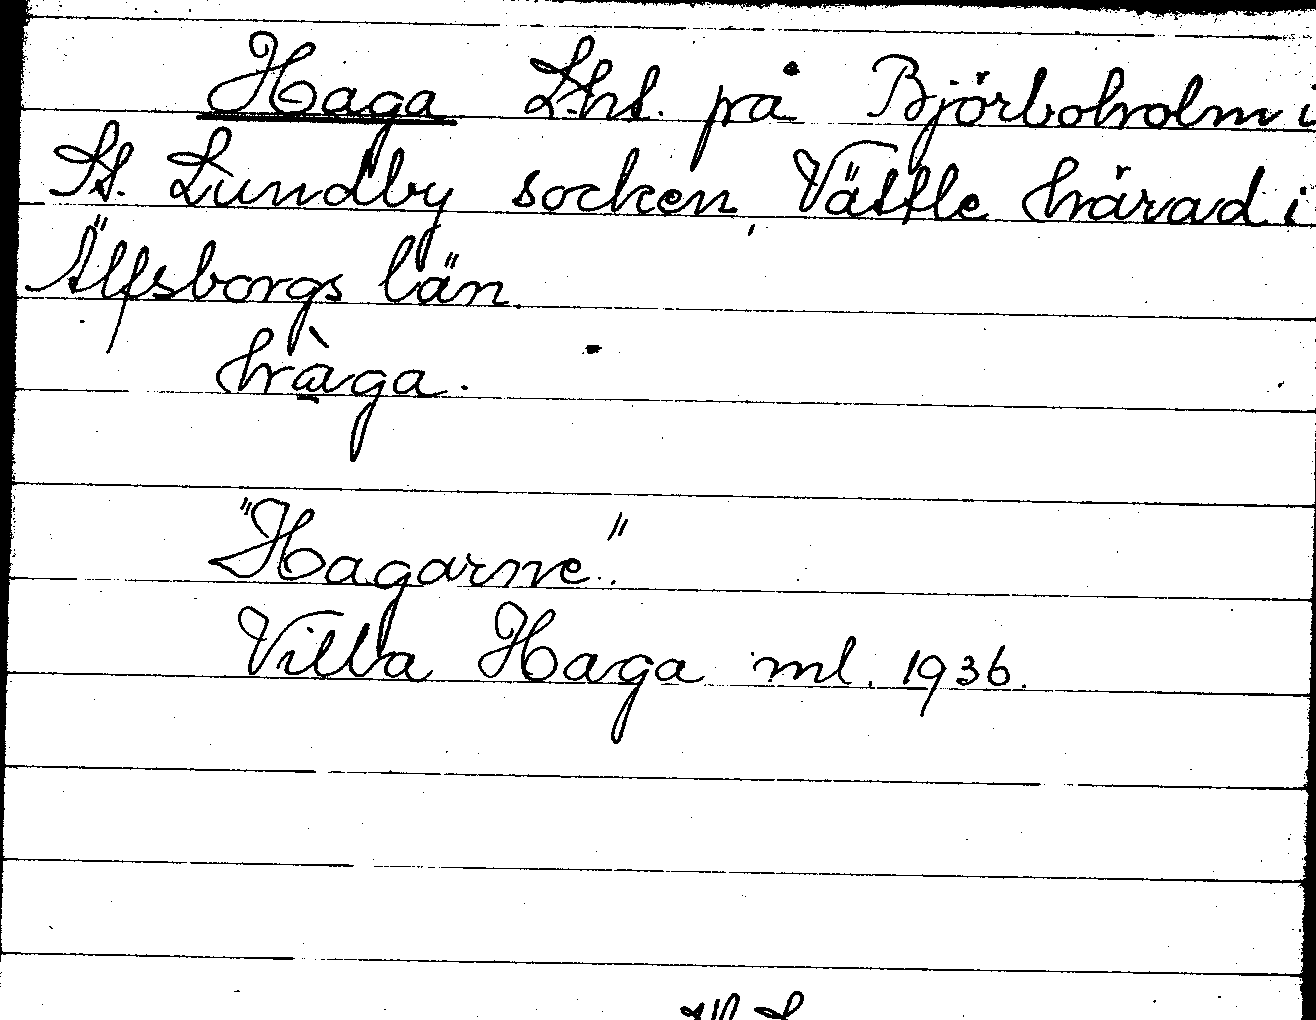 Haga Lht. på Björboholm i
St. Lundby socken, Vättle härad i
Älfsborgs län.
hàga.
"Hagarne".
Villa Haga ml. 1936.